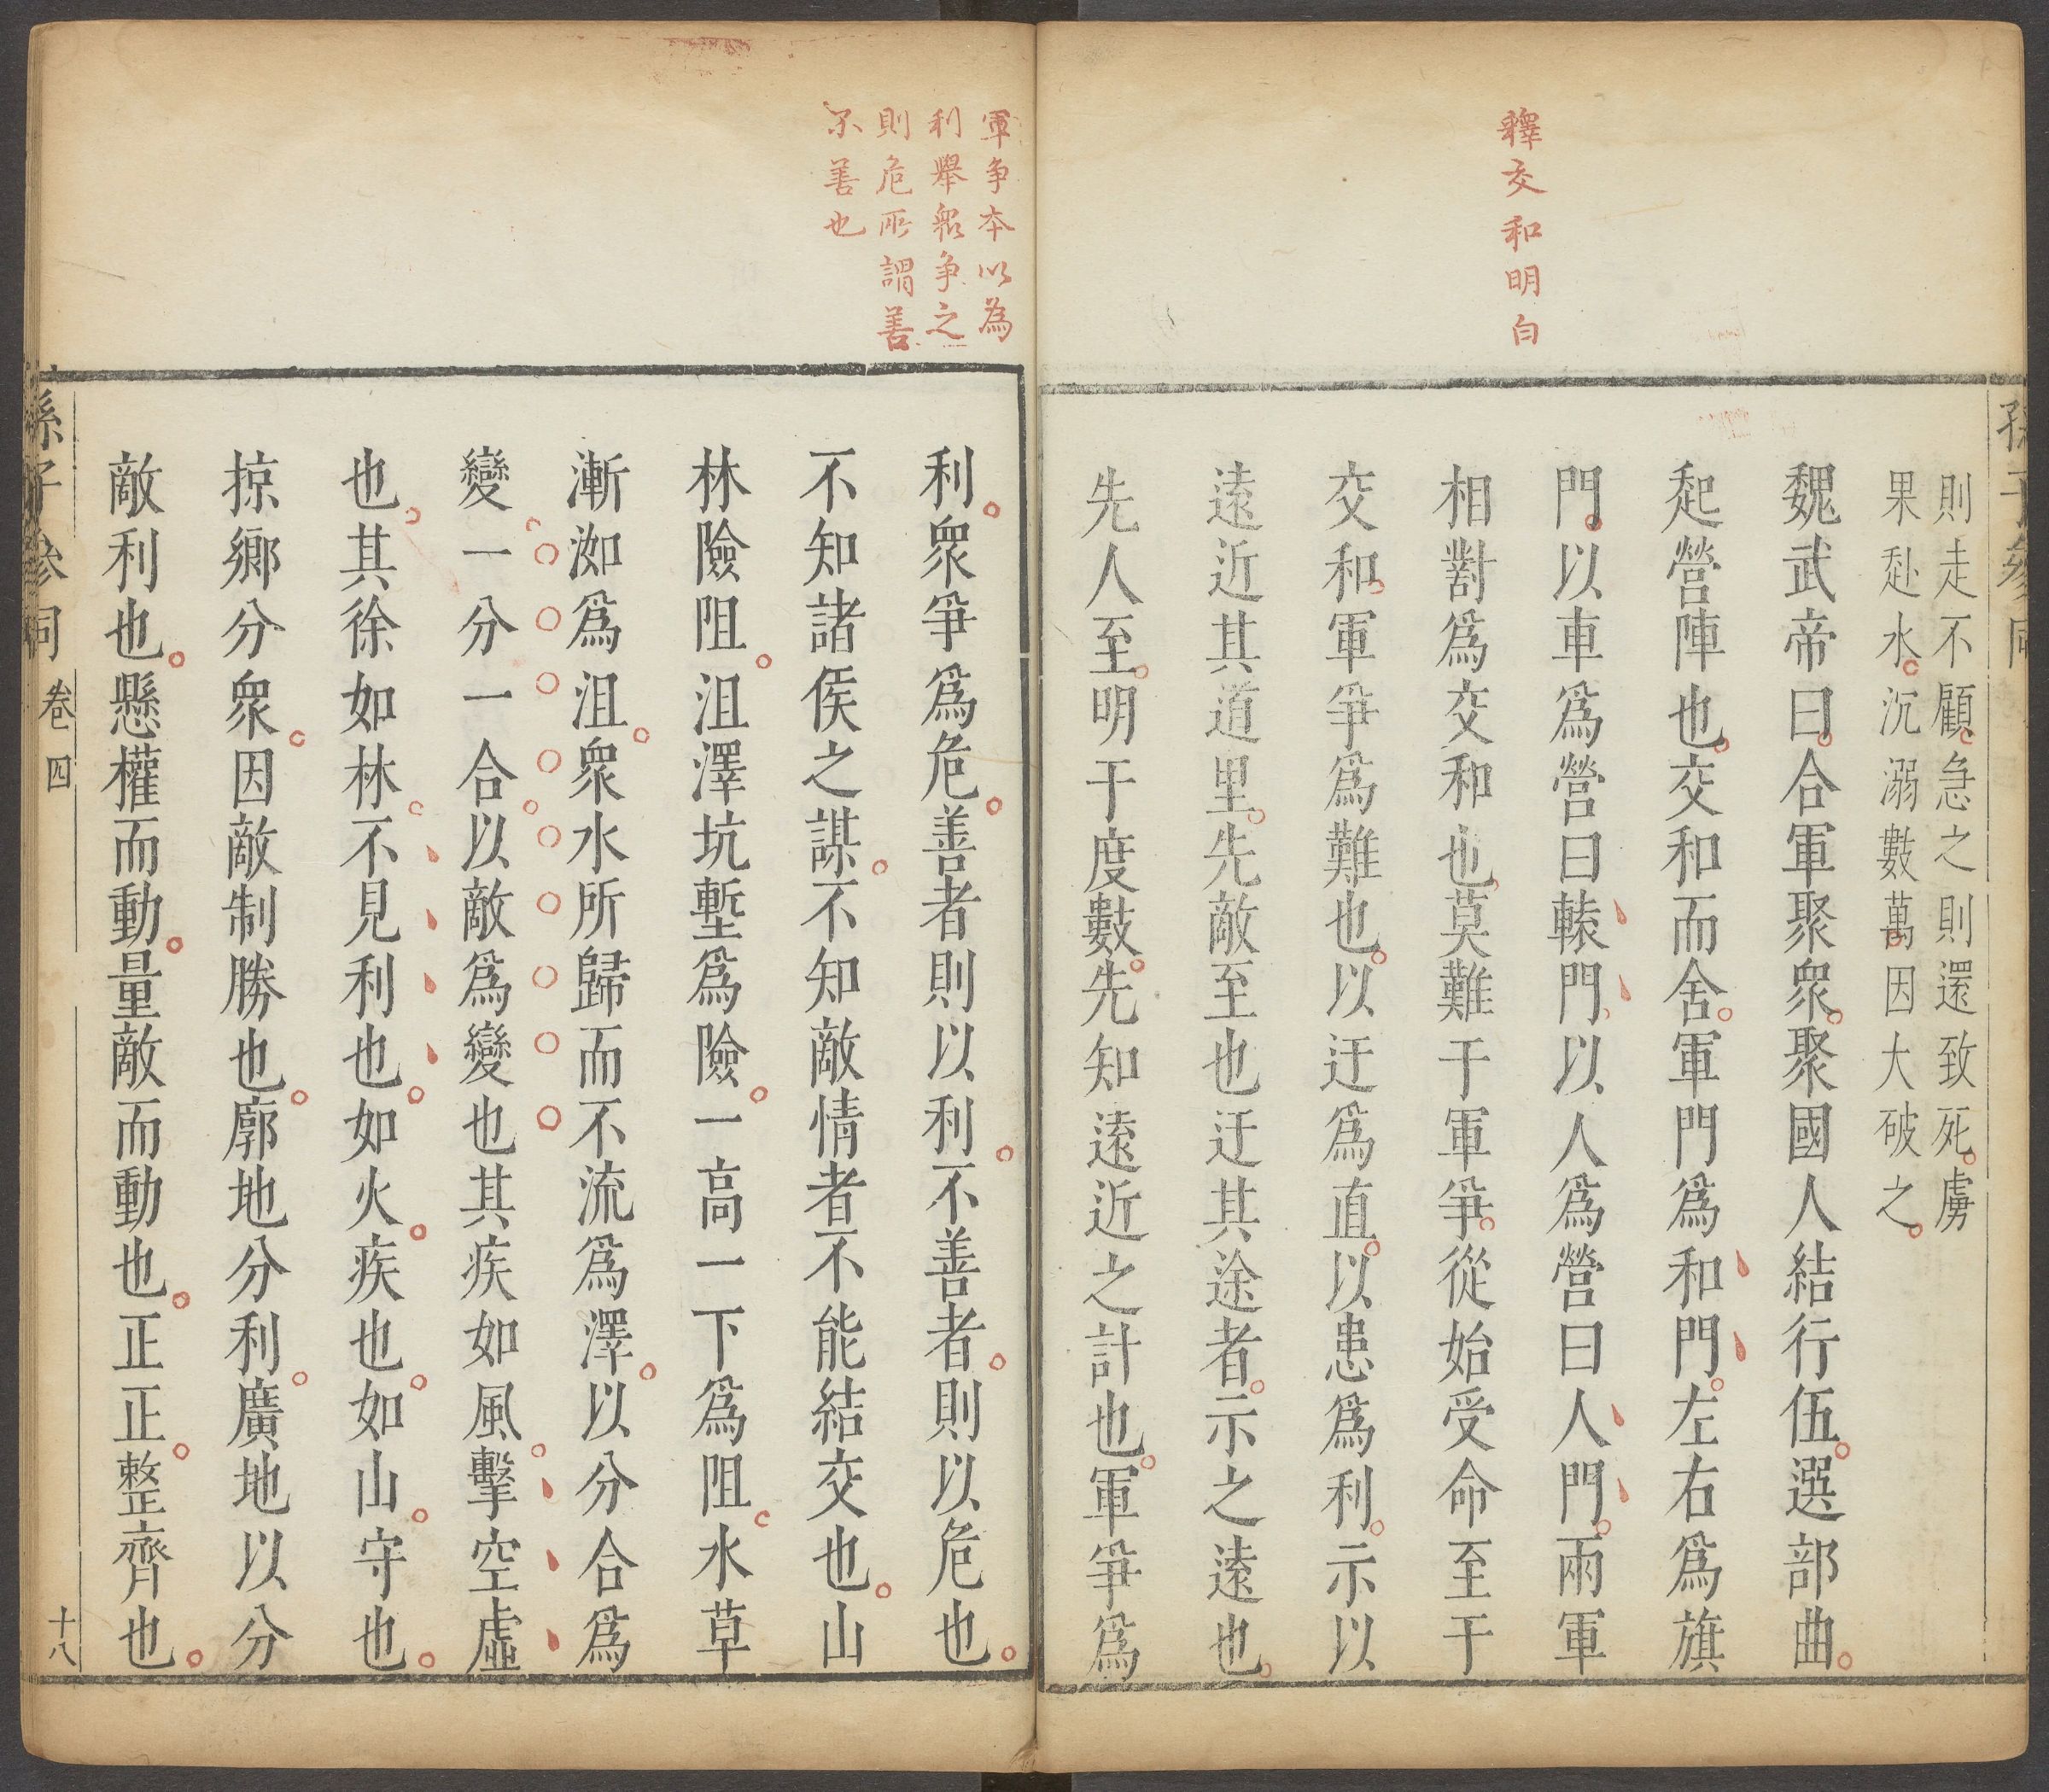 孫子參同
釋交和明白
則走不顧急之則還致死虜
果赴水沉溺數萬因大破之
魏武帝曰合軍聚衆聚國人結行伍選部曲
起營陣也交和而舍軍門爲和門左右爲旗
門以車爲營曰轅門以人爲營曰人門兩軍
相對爲交和也莫難于軍爭從始受命至于
交和軍爭爲難也以迂爲直以患爲利示以
遠近其道里先敵至也迂其途者示之遠也
先人至明于度數先知遠近之計也軍爭爲
軍争本以為
利舉衆争之
則危所謂善
不善也
利衆爭爲危善者則以利不善者則以危也
不知諸侯之謀不知敵情者不能結交也山
林險阻沮澤坑塹爲險一高一下爲阻水草
漸洳爲沮衆水所歸而不流爲澤以分合爲
變一分一合以敵爲變也其疾如風擊空虛
也其徐如林不見利也如火疾也如山守也
掠鄉分衆因敵制勝也廓地分利廣地以分
敵利也懸權而動量敵而動也正正整齊也
孫子參同 卷四 十八